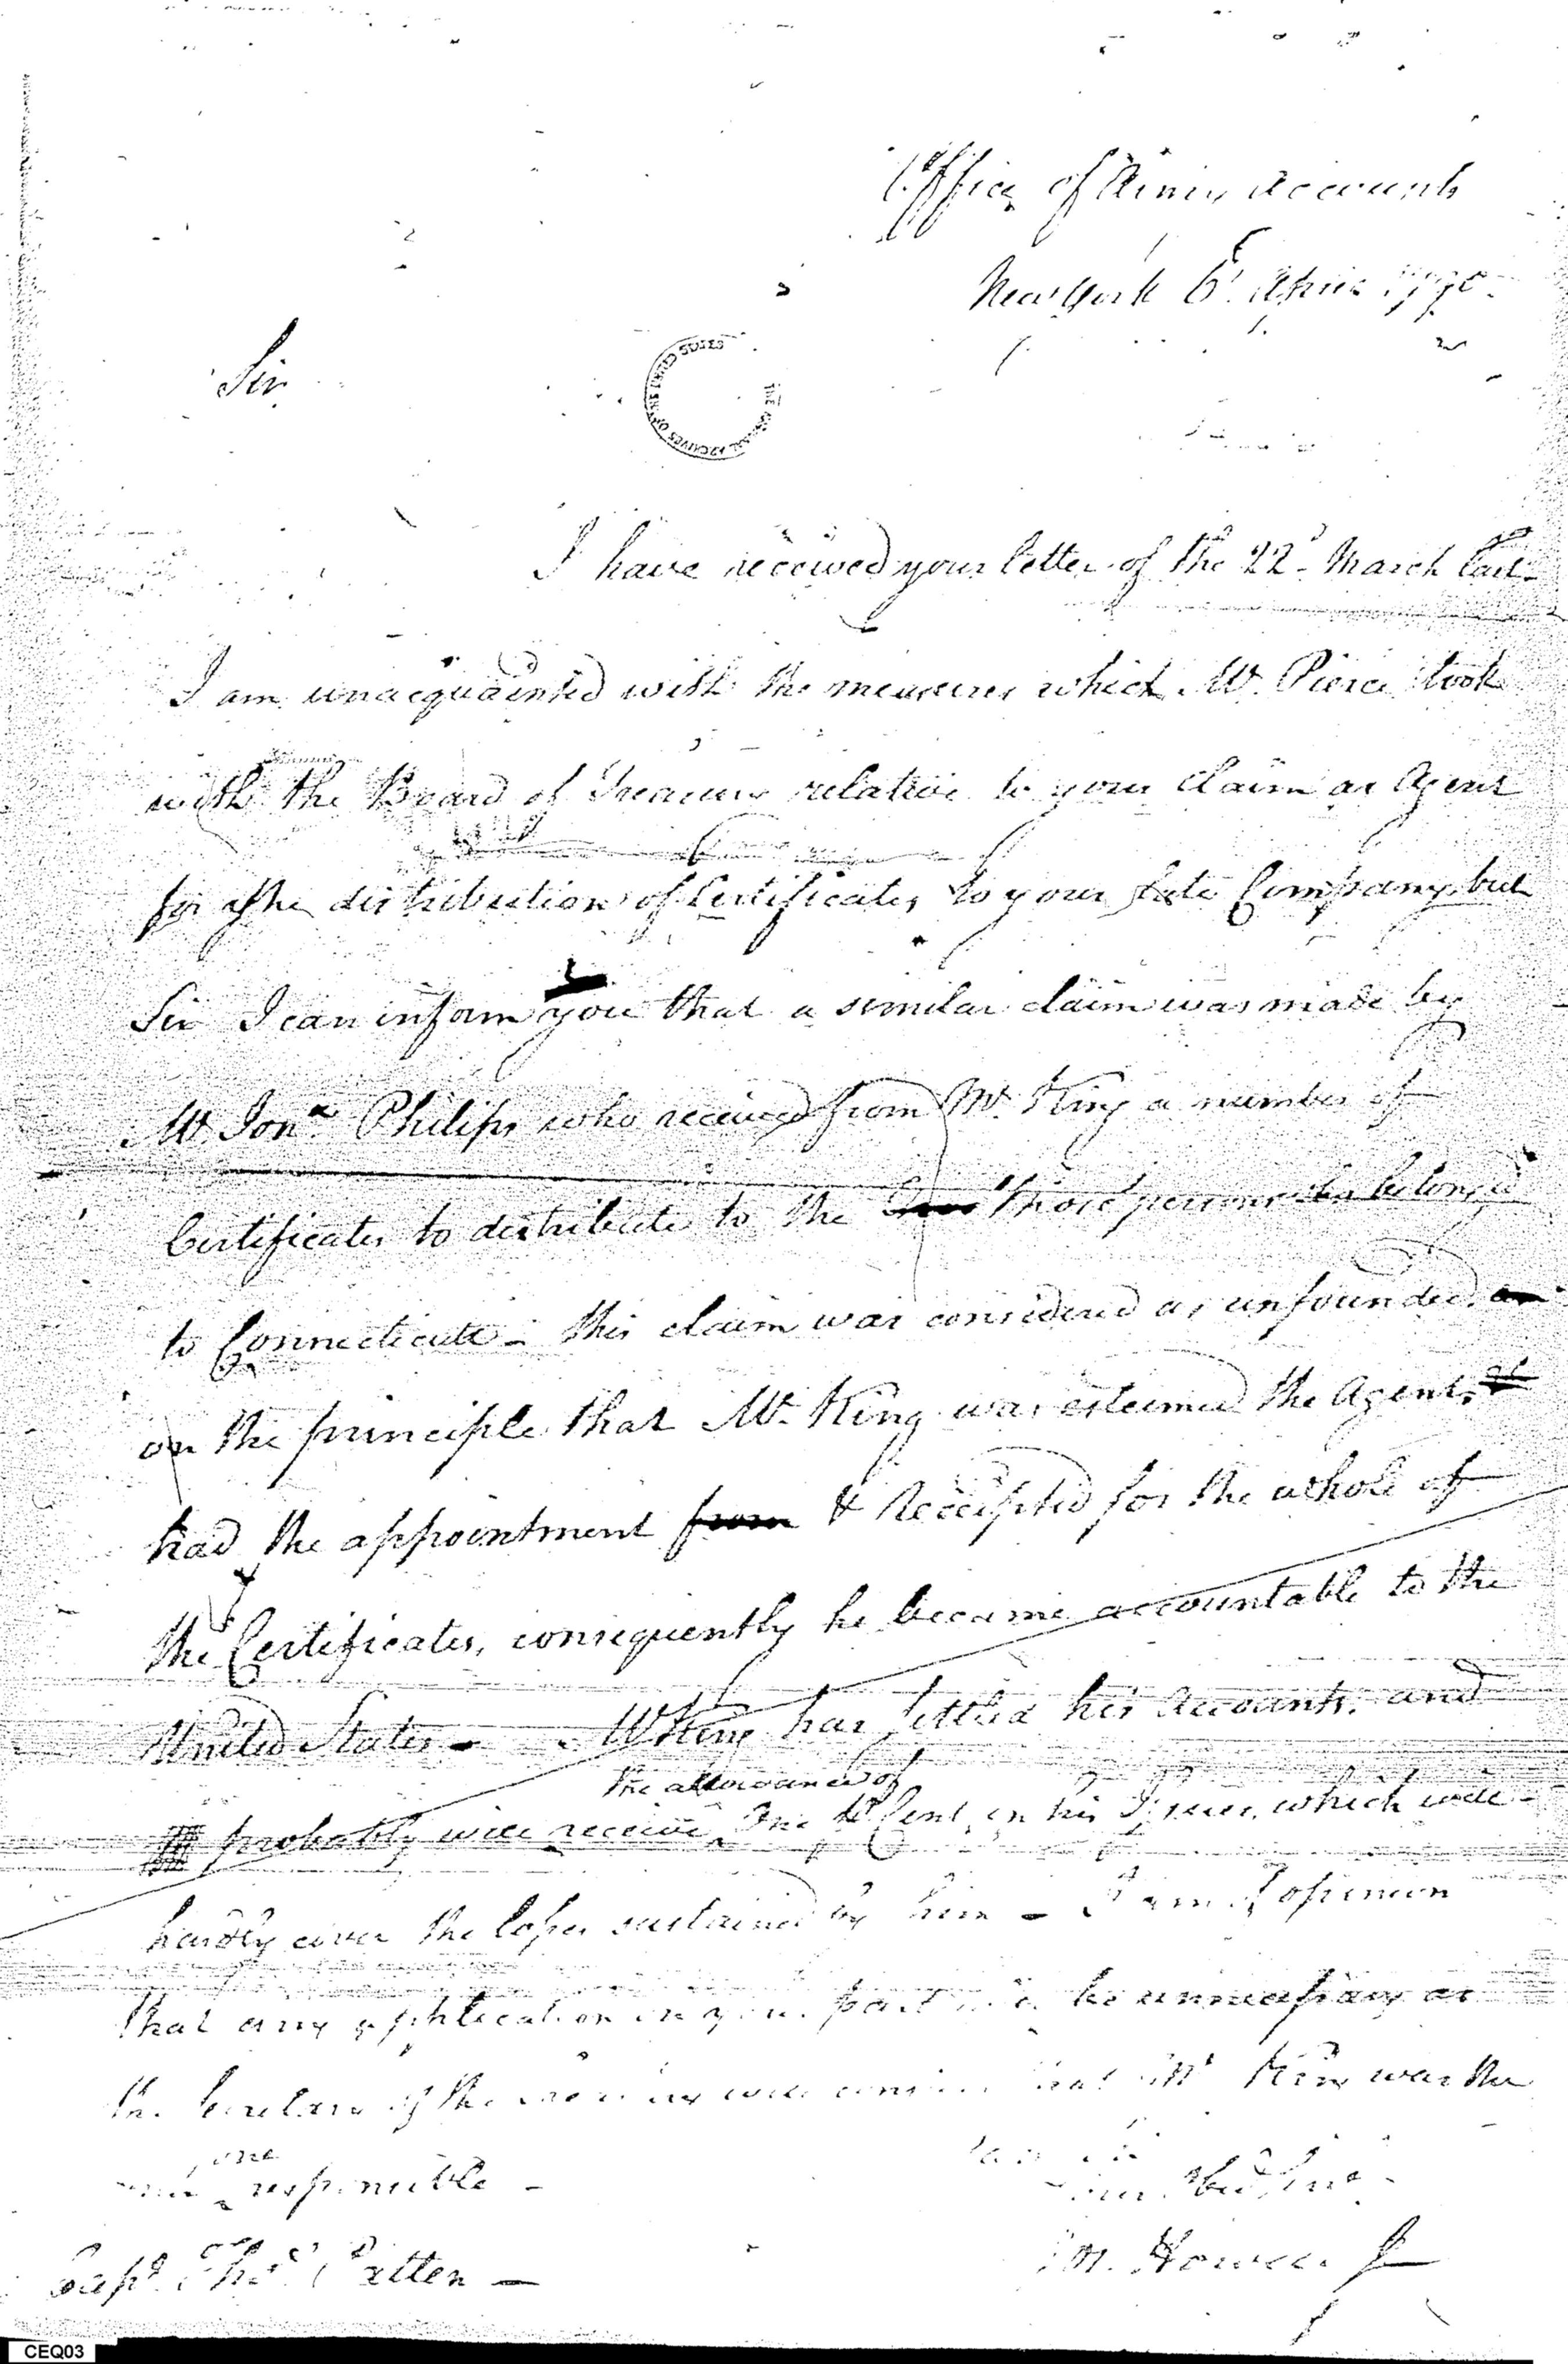 Office of Army Accounts
New York 6th April 1790
Sir
THE UNITED STATES
I have received your letter of the 22d March last
I am unacquainted with the measures which Mr. Pierce took
with the Board of Treasury relative to your claim as Agent
for the distribution of Certificates to your late Company, but
Sir I can inform you that a similar claim was made by
Mr Jona Philips who received from Mr. King a number of
Certificates to distribute to the those persons who belong'd
to Connecticutt - this claim was considered as unfounded
on the principle that Mr. King was esteemed the Agent,
had the appointment from & Receipted for the whole of
the Certificates, consequently he became accountable to the
United States - Mr King has settled his Accounts, and
the allowance of
probably will receive One pr Cent on his Issues, which will
hardly cover the losses sustained by him - I am of opinion
that any application on your part will be unnecessary as
the of the will that Mr King was the
one
responsible -
Sir
your Obed. Serv.
Capt. Thos. Patten -
M. Howell Jr
CEQ03